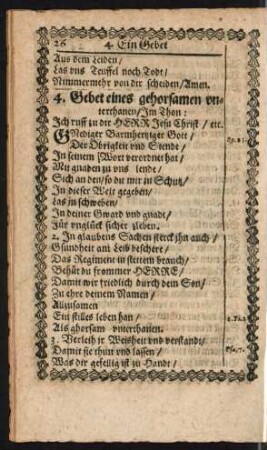 26 4. Ein Gebet
Aus dem Leiden/
Las vns Teuffel noch Todt/
Nimmermehr von dir scheiden/ Amen.
4. Gebet eines gehorsamen vn-
terthanen/ Im Thon:
Ich ruff zu dir HERR Jesu Christ/ etc.
GNediger Barmhertziger Gott/
Der Obrigkeit vnd Stende/
In seinem Wort verordnet hat/
Mit gnaden zu vns wende/
Sich an den/ so du mir zu Schutz/
In dieser Welt gegeben/
Las in schweben/
In deiner Gward vnd gnadt/
Für vnglück sicher leben.
2. In glaubens Sachen sterck ihn auch/
Gsundheit am Leib beschere/
Das Regiment in stettem brauch/
Behüt du frommer HERRE/
Damit wir friedlich durch dein Son/
Zu ehre deinem Namen/
Allzusamen
Ein stilles leben han/
Als ghorsam vnterthanen.
3. Verleih jr Weisheit vnd verstandt/
Damit sie thun vnd lassen/
Was dir gefellig ist zu Handt/